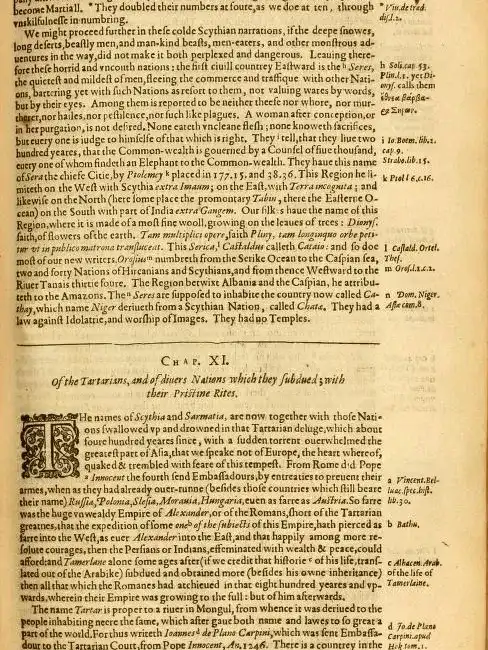 become Martiall. * They doubled their numbers at foure, as we doe at ten, through
vnskilfulnesse in numbring.
We might proceed further in these colde Scythian narrations, if the deepe snowes,
long deserts, beastly men, and man-kind beasts, men-eaters, and other monstrous ad-
uentures in the way, did not make it both perplexed and dangerous. Leauing there-
fore these horrid and vncouth nations: the first ciuill countrey Eastward is the h Seres,
the quietest and mildest of men, fleeing the commerce and traffique with other Nati-
ons, bartering yet with such Nations as resort to them, not valuing wares by words,
but by their eyes. Among them is reported to be neither theefe nor whore, nor mur-
therer, nor hailes, nor pestilence, nor such like plagues. A woman after conception, or
in her purgation, is not desired. None eateth vncleane flesh; none knoweth sacrifices,
but euery one is iudge to himselfe of that which is right. They i tell, that they liue two
hundred yeares, that the Common-wealth is gouerned by a Counsel of fiue thousand,
euery one of whom findeth an Elephant to the Common-wealth. They haue this name
of Sera the chiefe Citie, by Ptolemey k placed in 177.15. and 38.36. This Region he li-
miteth on the West with Scythia extra Imaum; on the East, with Terra incognita; and
likewise on the North (here some place the promontary Tabin, there the Easterne O-
cean) on the South with part of India extra Gangem. Our silks haue the name of this
Region, where it is made of a most fine wooll, growing on the leaues of trees: Dionys.
saith, of flowers of the earth. Tam multiplici opere, saith Pliny, tam longinquo orbe peti-
tur vt in publico matrona transluceat. This Serica, l Castaldus calleth Cataio: and so doe
most of our new writers. Orosius m numbreth from the Serike Ocean to the Caspian sea,
two and forty Nations of Hircanians and Scythians, and from thence Westward to the
Riuer Tanais thirtie foure. The Region betwixt Albania and the Caspian, he attribu-
teth to the Amazons. The n Seres are supposed to inhabite the country now called Ca-
thay, which name Niger deriueth from a Scythian Nation, called Chata. They had a
law against Idolatrie, and worship of Images. They had no Temples.
* Vin. de trad.
disf.l.2.
h Solis. cap. 53.
Plin.l.5. yet Di-
onys. calls them
i Io. Boem. lib.2.
cap.9.
Strabo.lib.15.
k Ptol l 6.c.16.
l Castald. Ortel.
Thes.
m Oros.l.1.c.2.
n Dom. Niger.
Asiæ com.8.
CHAP. XI.
Of the Tartarians, and of diuers Nations which they subdued; with
their Pristine Rites.
THe names of Scythia and Sarmatia, are now together with those Nati-
ons swallowed vp and drowned in that Tartarian deluge, which about
foure hundred yeares since, with a sudden torrent ouerwhelmed the
greatest part of Asia, that we speake not of Europe, the heart whereof,
quaked & trembled with feare of this tempest. From Rome did Pope
a Innocent the fourth send Embassadours, by entreaties to preuent their
armes, when as they had already ouer-runne (besides those countries which still beare
their name) Russia, Polonia, Slesia, Morauia, Hungaria, euen as farre as Austria. So farre
was the huge vnweldy Empire of Alexander, or of the Romans, short of the Tartarian
greatnes, that the expedition of some b one of the subiects of this Empire, hath pierced as
farre into the West, as euer Alexander into the East, and that happily among more re-
solute courages, then the Persians or Indians, effeminated with wealth & peace, could
afford: and Tamerlane alone some ages after (if we credit that historie c of his life, trans-
lated out of the Arabike) subdued and obtained more (besides his owne inheritance)
then all that which the Romans had atchieued in that eight hundred yeares and vp-
wards, wherein their Empire was growing to the full: but of him afterwards.
The name Tartar is proper to a riuer in Mongul, from whence it was deriued to the
people inhabiting neere the same, which after gaue both name and lawes to so great a
part of the world. For thus writeth Ioannes d de Plano Carpini, which was sent Embassa-
dour to the Tartarian Court, from Pope Innocent, An. 1246. There is a countrey in the
a Vincent. Bel-
luac. spec. hist.
lib.30.
b Bathu.
c Alhacen. Arab.
of the life of
Tamerlaine.
d Io de Plano
Carpini.apud
Hak tom.1.